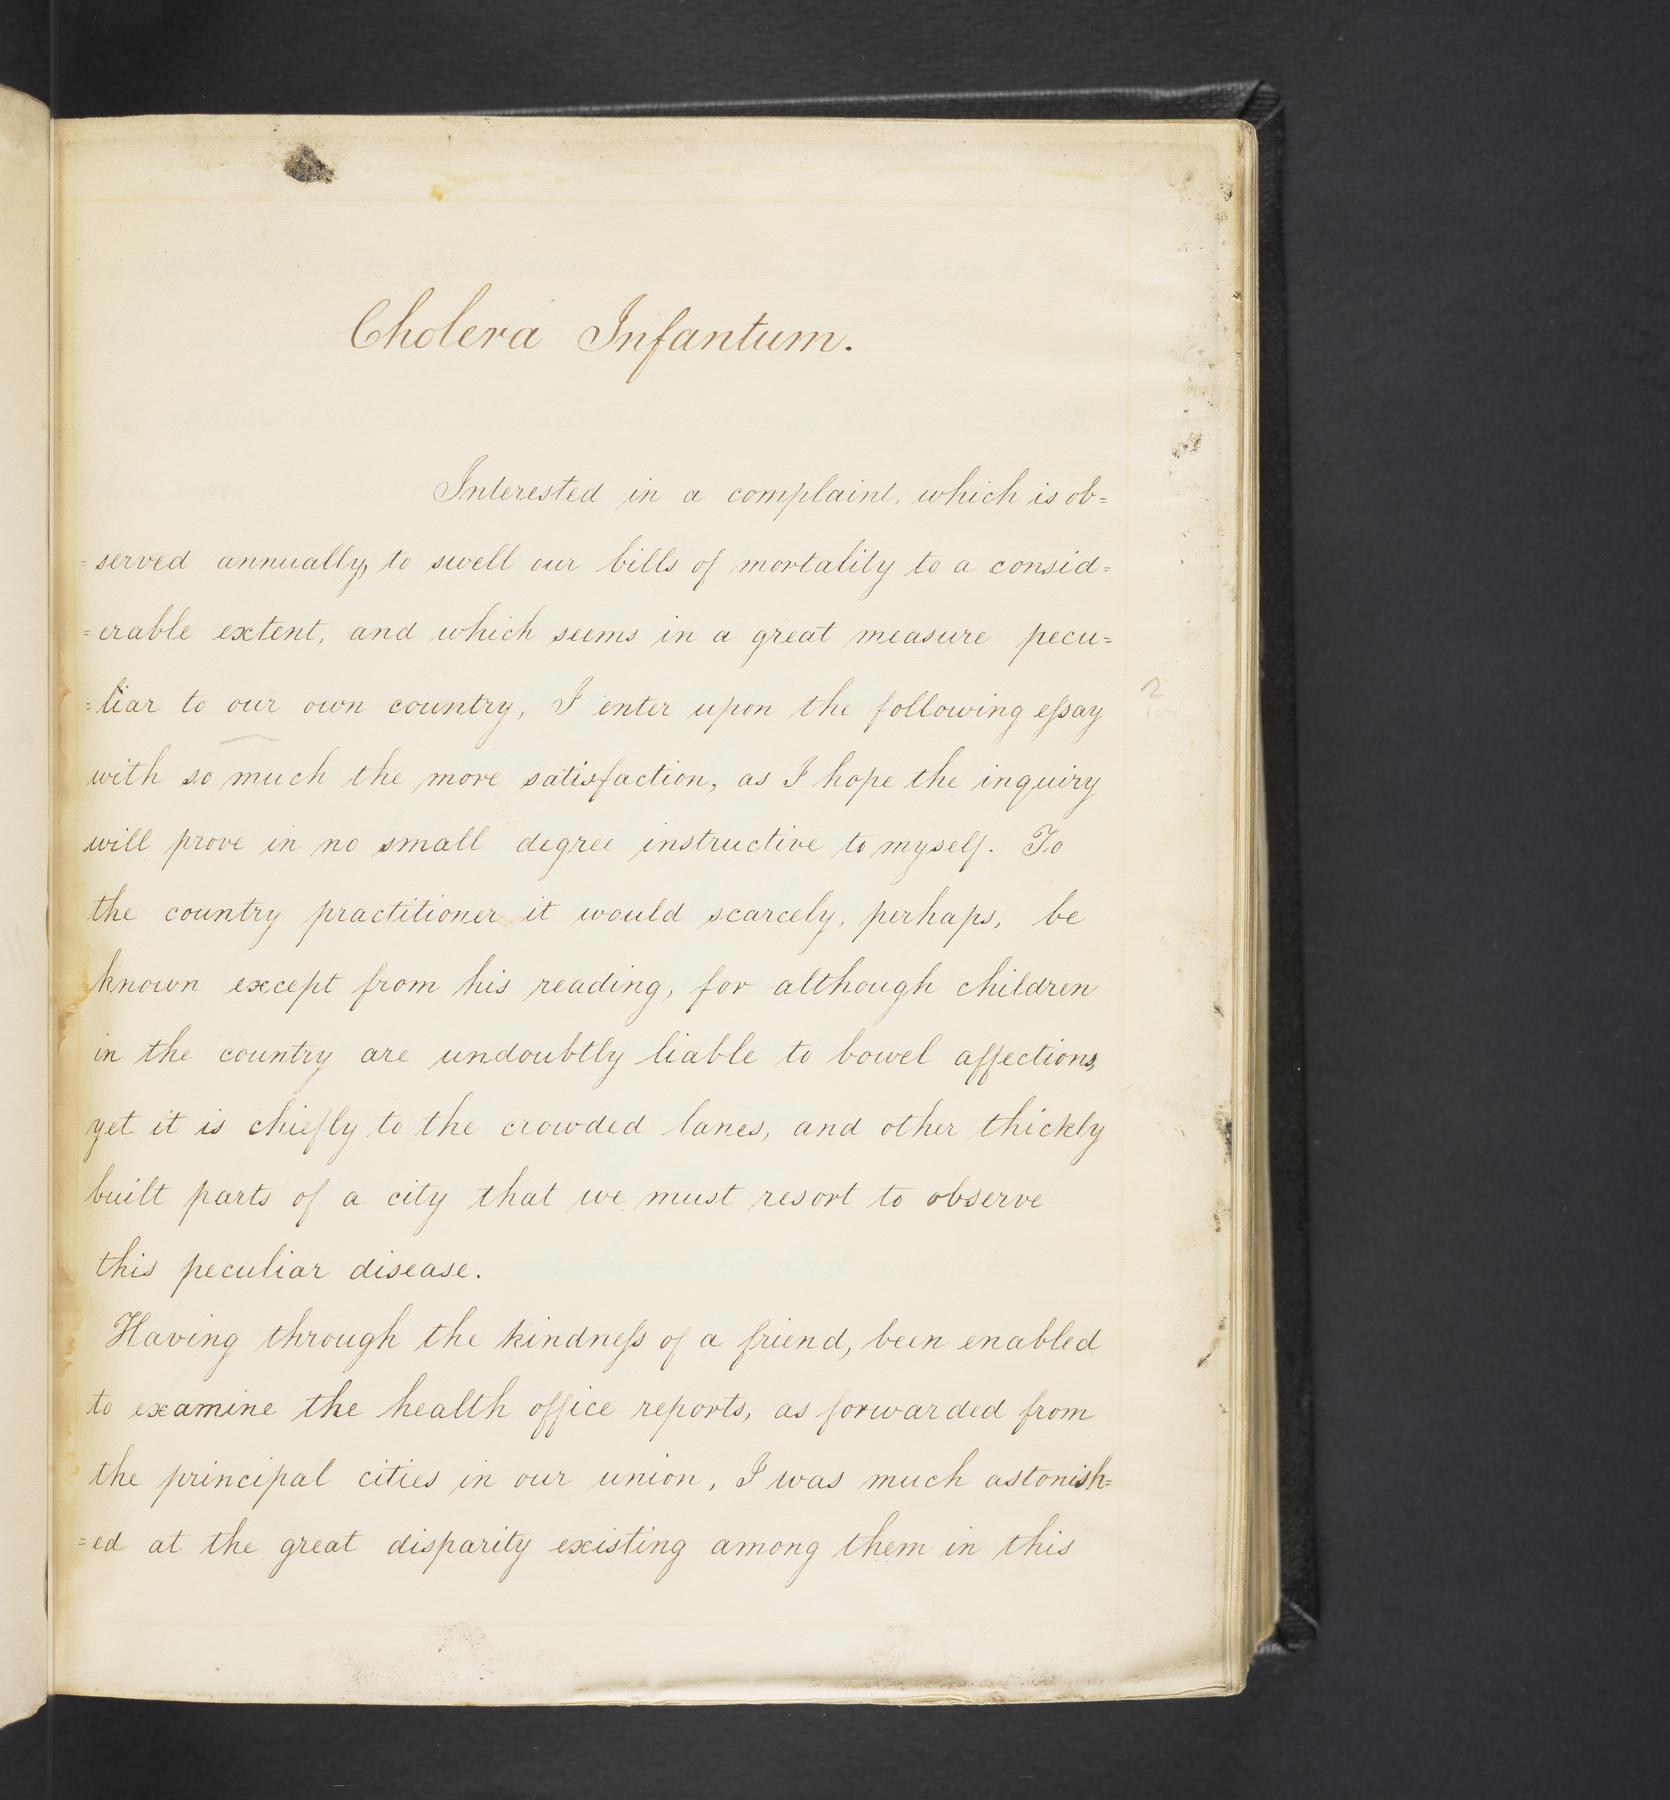 Cholera Infantum.
Interested in a complaint, which is ob=
=served annually, to swell our bills of mortality to a consid=
=erable extent, and which seems in a great measure pecu=
=liar to our own country, I enter upon the following eſsay
with so much the more satisfaction, as I hope the inquiry
will prove in no small degree instructive to myself. To
the country practitioner it would scarcely, perhaps, be
known except from his reading, for although children
in the country are undoubtly liable to bowel affections,
yet it is chiefly to the crowded lanes, and other thickly
built parts of a city that we must resort to observe
this peculiar disease.
Having through the kindneſs of a friend, been enabled
to examine the health office reports, as forwarded from
the principal cities in our union, I was much astonish=
=ed at the great disparity existing among them in this